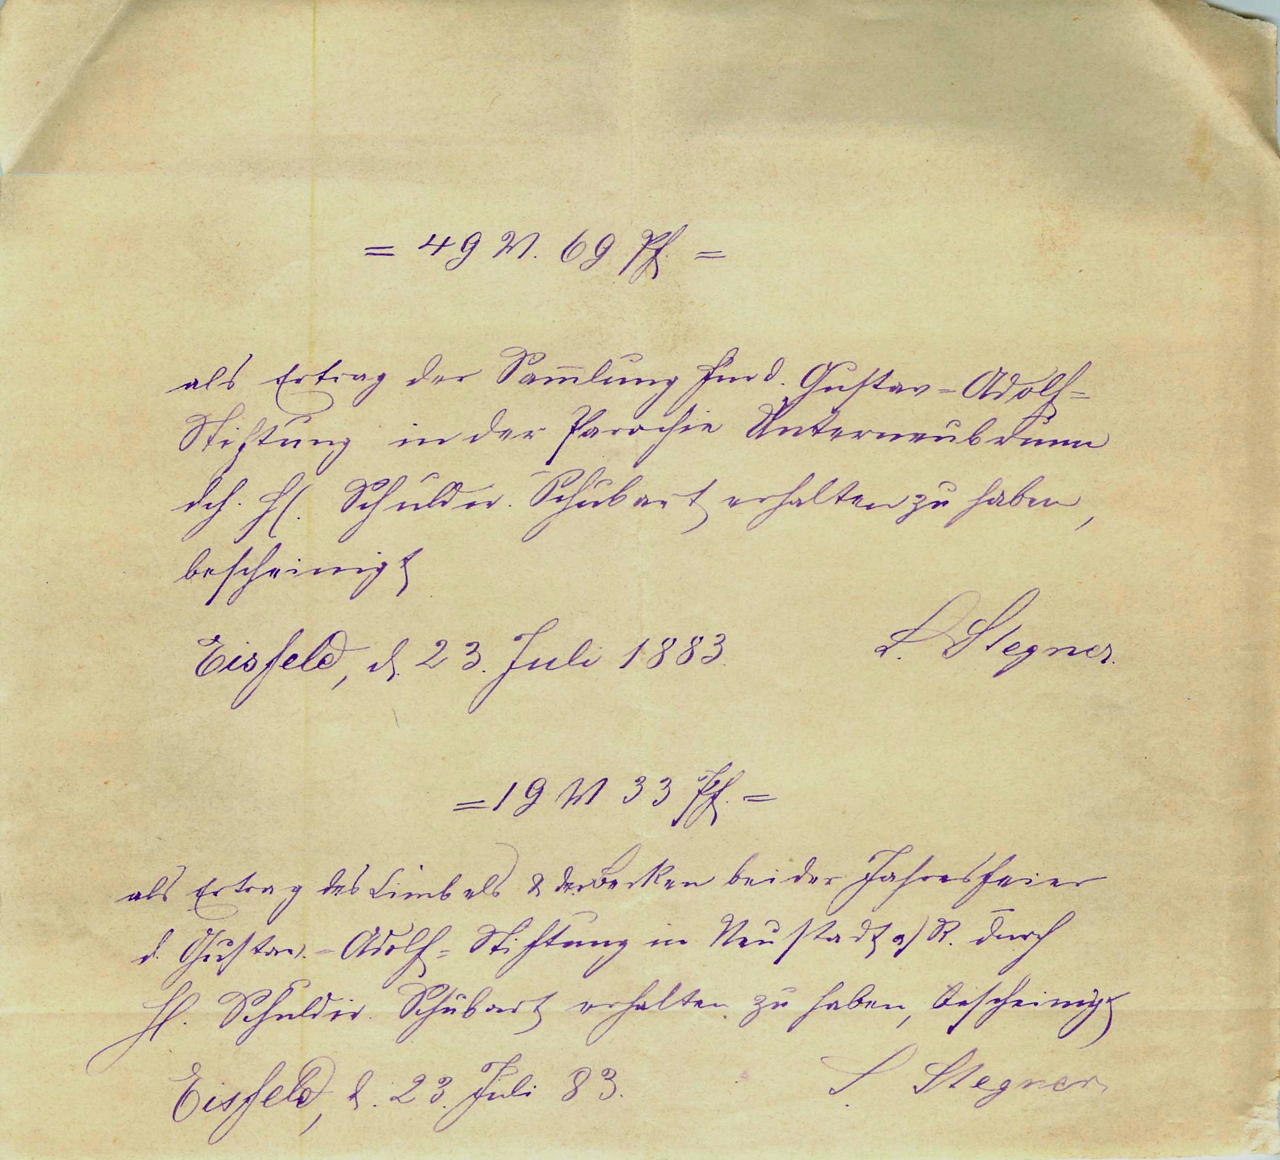 = 49 M. 69 Pf. =
als Ertrag der Sam̄lung für d. Gustav-Adolf-
Stiftung in der Parochie Unterneubrunn
dch. H. Schuldir. Schubart erhalten zu haben,
bescheinigt
Eisfeld, d. 23. Juli 1883. L. Stegner.
= 19 M 33 Pf. =
als Ertrag des & der Becken bei der Jahresfeier
d. Gustav.-Adolf-Stiftung in Neustadt a/R. durch
H. Schuldir. Schubart erhalten zu haben, bescheinigt
Eisfeld, d. 23. Juli 83. Stegner